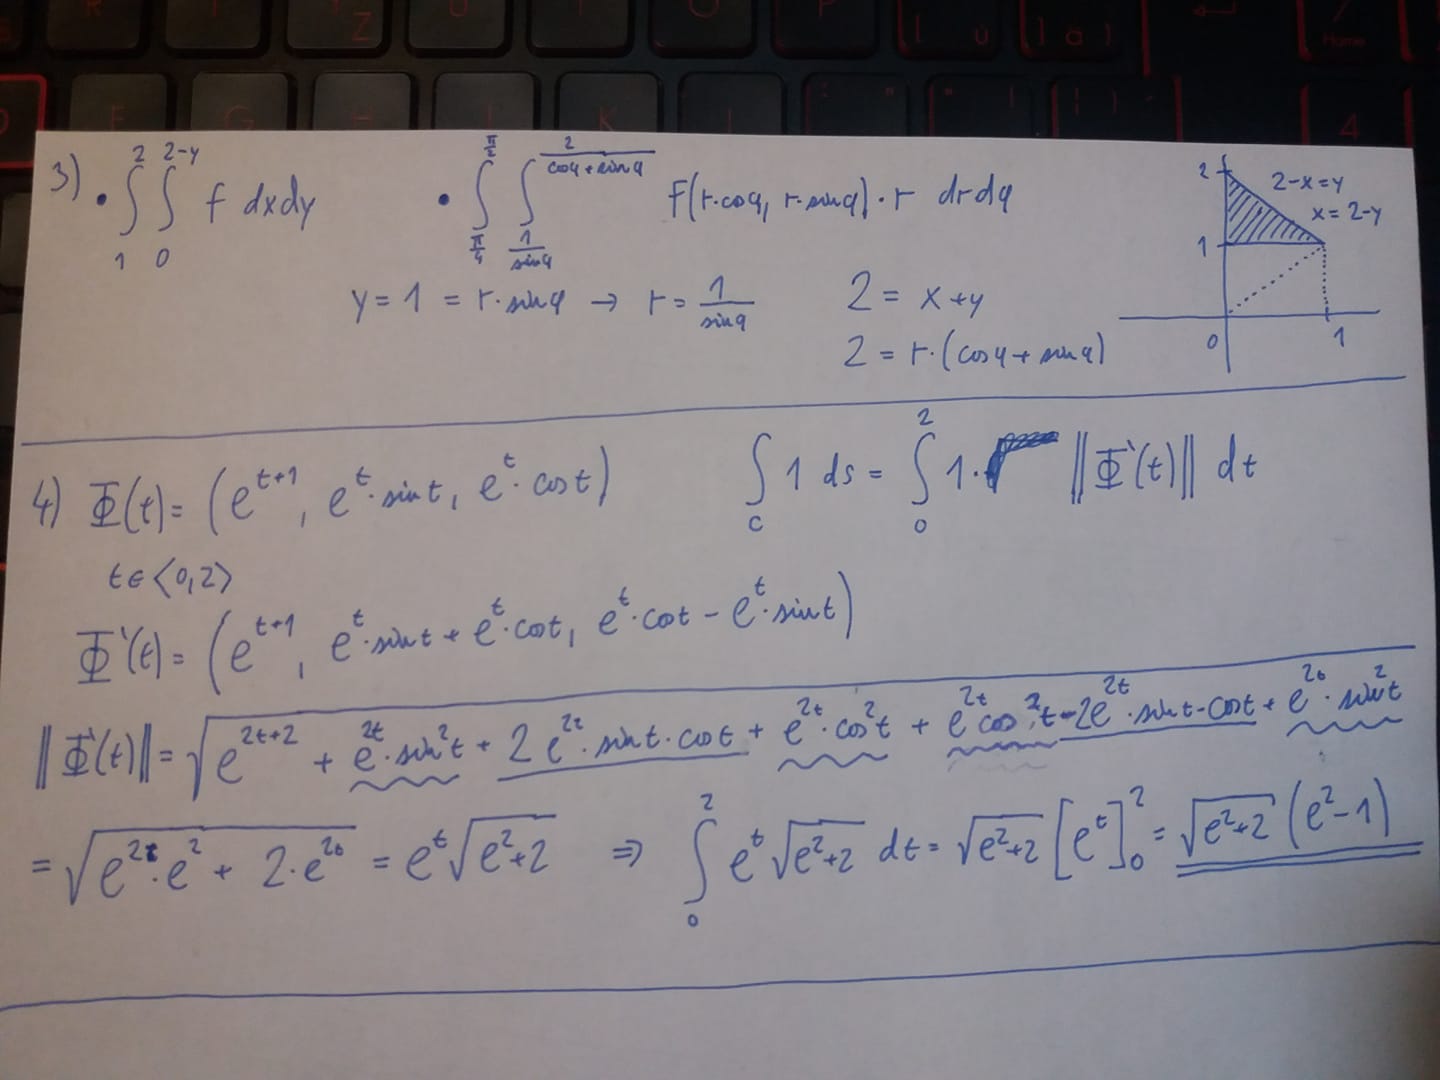 3) • ∫₁² ∫₀^(2-y) f dxdy • ∫_(π/4)^(π/2) ∫_(1/sinφ)^(2/(cosφ+sinφ)) f(r·cosφ, r·sinφ)·r drdφ
2
2-x=y
x=2-y
1
y=1 = r·sinφ → r= 1/sinφ 2= x+y
2=r·(cosφ+sinφ)
0 1
4) Φ(t)= (e^(t+1), e^t·sint, e^t·cost) ∫_C 1 ds = ∫₀² 1· ‖Φ'(t)‖ dt
t∈⟨0,2⟩
Φ'(t)= (e^(t+1), e^t·sint + e^t·cost, e^t·cost - e^t·sint)
‖Φ'(t)‖= √(e^(2t+2) + e^(2t)·sin²t + 2e^(2t)·sint·cost + e^(2t)·cos²t + e^(2t)cos²t - 2e^(2t)·sint·cost + e^(2t)·sin²t)
= √(e^(2t)·e² + 2·e^(2t)) = e^t√(e²+2) ⇒ ∫₀² e^t√(e²+2) dt = √(e²+2) [e^t]₀² = √(e²+2) (e²-1)